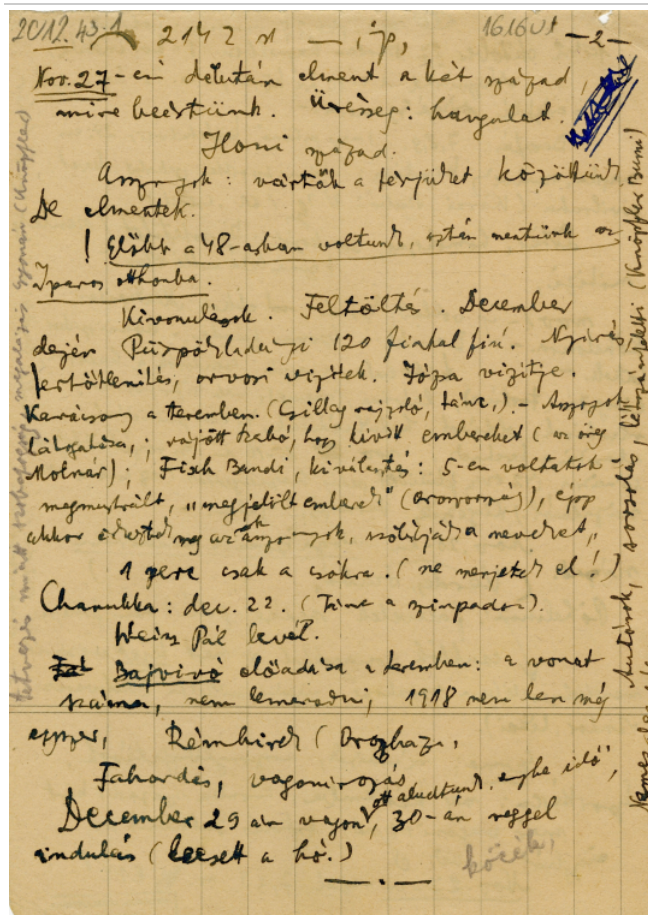 2012.43.1
1616Út
2142 st — , ip,
— 2 —
Nov. 27-én délután elment a két század,
mire beértünk. Üresség: hangulat.
Honi század.
Asszonyok: várták a férjüket közöttünk
De elmentek.
! Előbb a 48-asban voltunk, aztán mentünk az
Iparos otthonba.
Kivonulások. Feltöltés. December
elején Püspökladányi 120 fiatal fiú. Nyirás,
fertőtlenítés, orvosi vizitek. Józsa vizitje.
Karácsony a teremben. (Csillag rajzoló, tánc,). – Asszonyok
látogatása, ; rájött Szabó, hogy kivitt embereket (az öreg
Molnár); Fisch Bandi, kiválasztás: 5-en voltatok
megmustrált, „megjelölt emberek" (Oroszország), épp
akkor érkeztek meg az asszonyok, szólítják a neveket,
1 perc csak a csókra. (ne menjetek el!)
Chanukka: dec. 22. (Tánc a szinpadon).
Weisz Pál levél.
Bajvivó előadása a teremben: a vonat
száma, nem lemaradni, 1918 nem lesz még
egyszer, Rémhirek (Oroszhaza,
Fahordás, vagonirozás
ott aludtunk, egybe idő,
December 29-én vagon, 30-án reggel
indulás (leesett a hó.)
kócék,
— . —
Autósok, sorsolás, (Knöpfler Bumi)